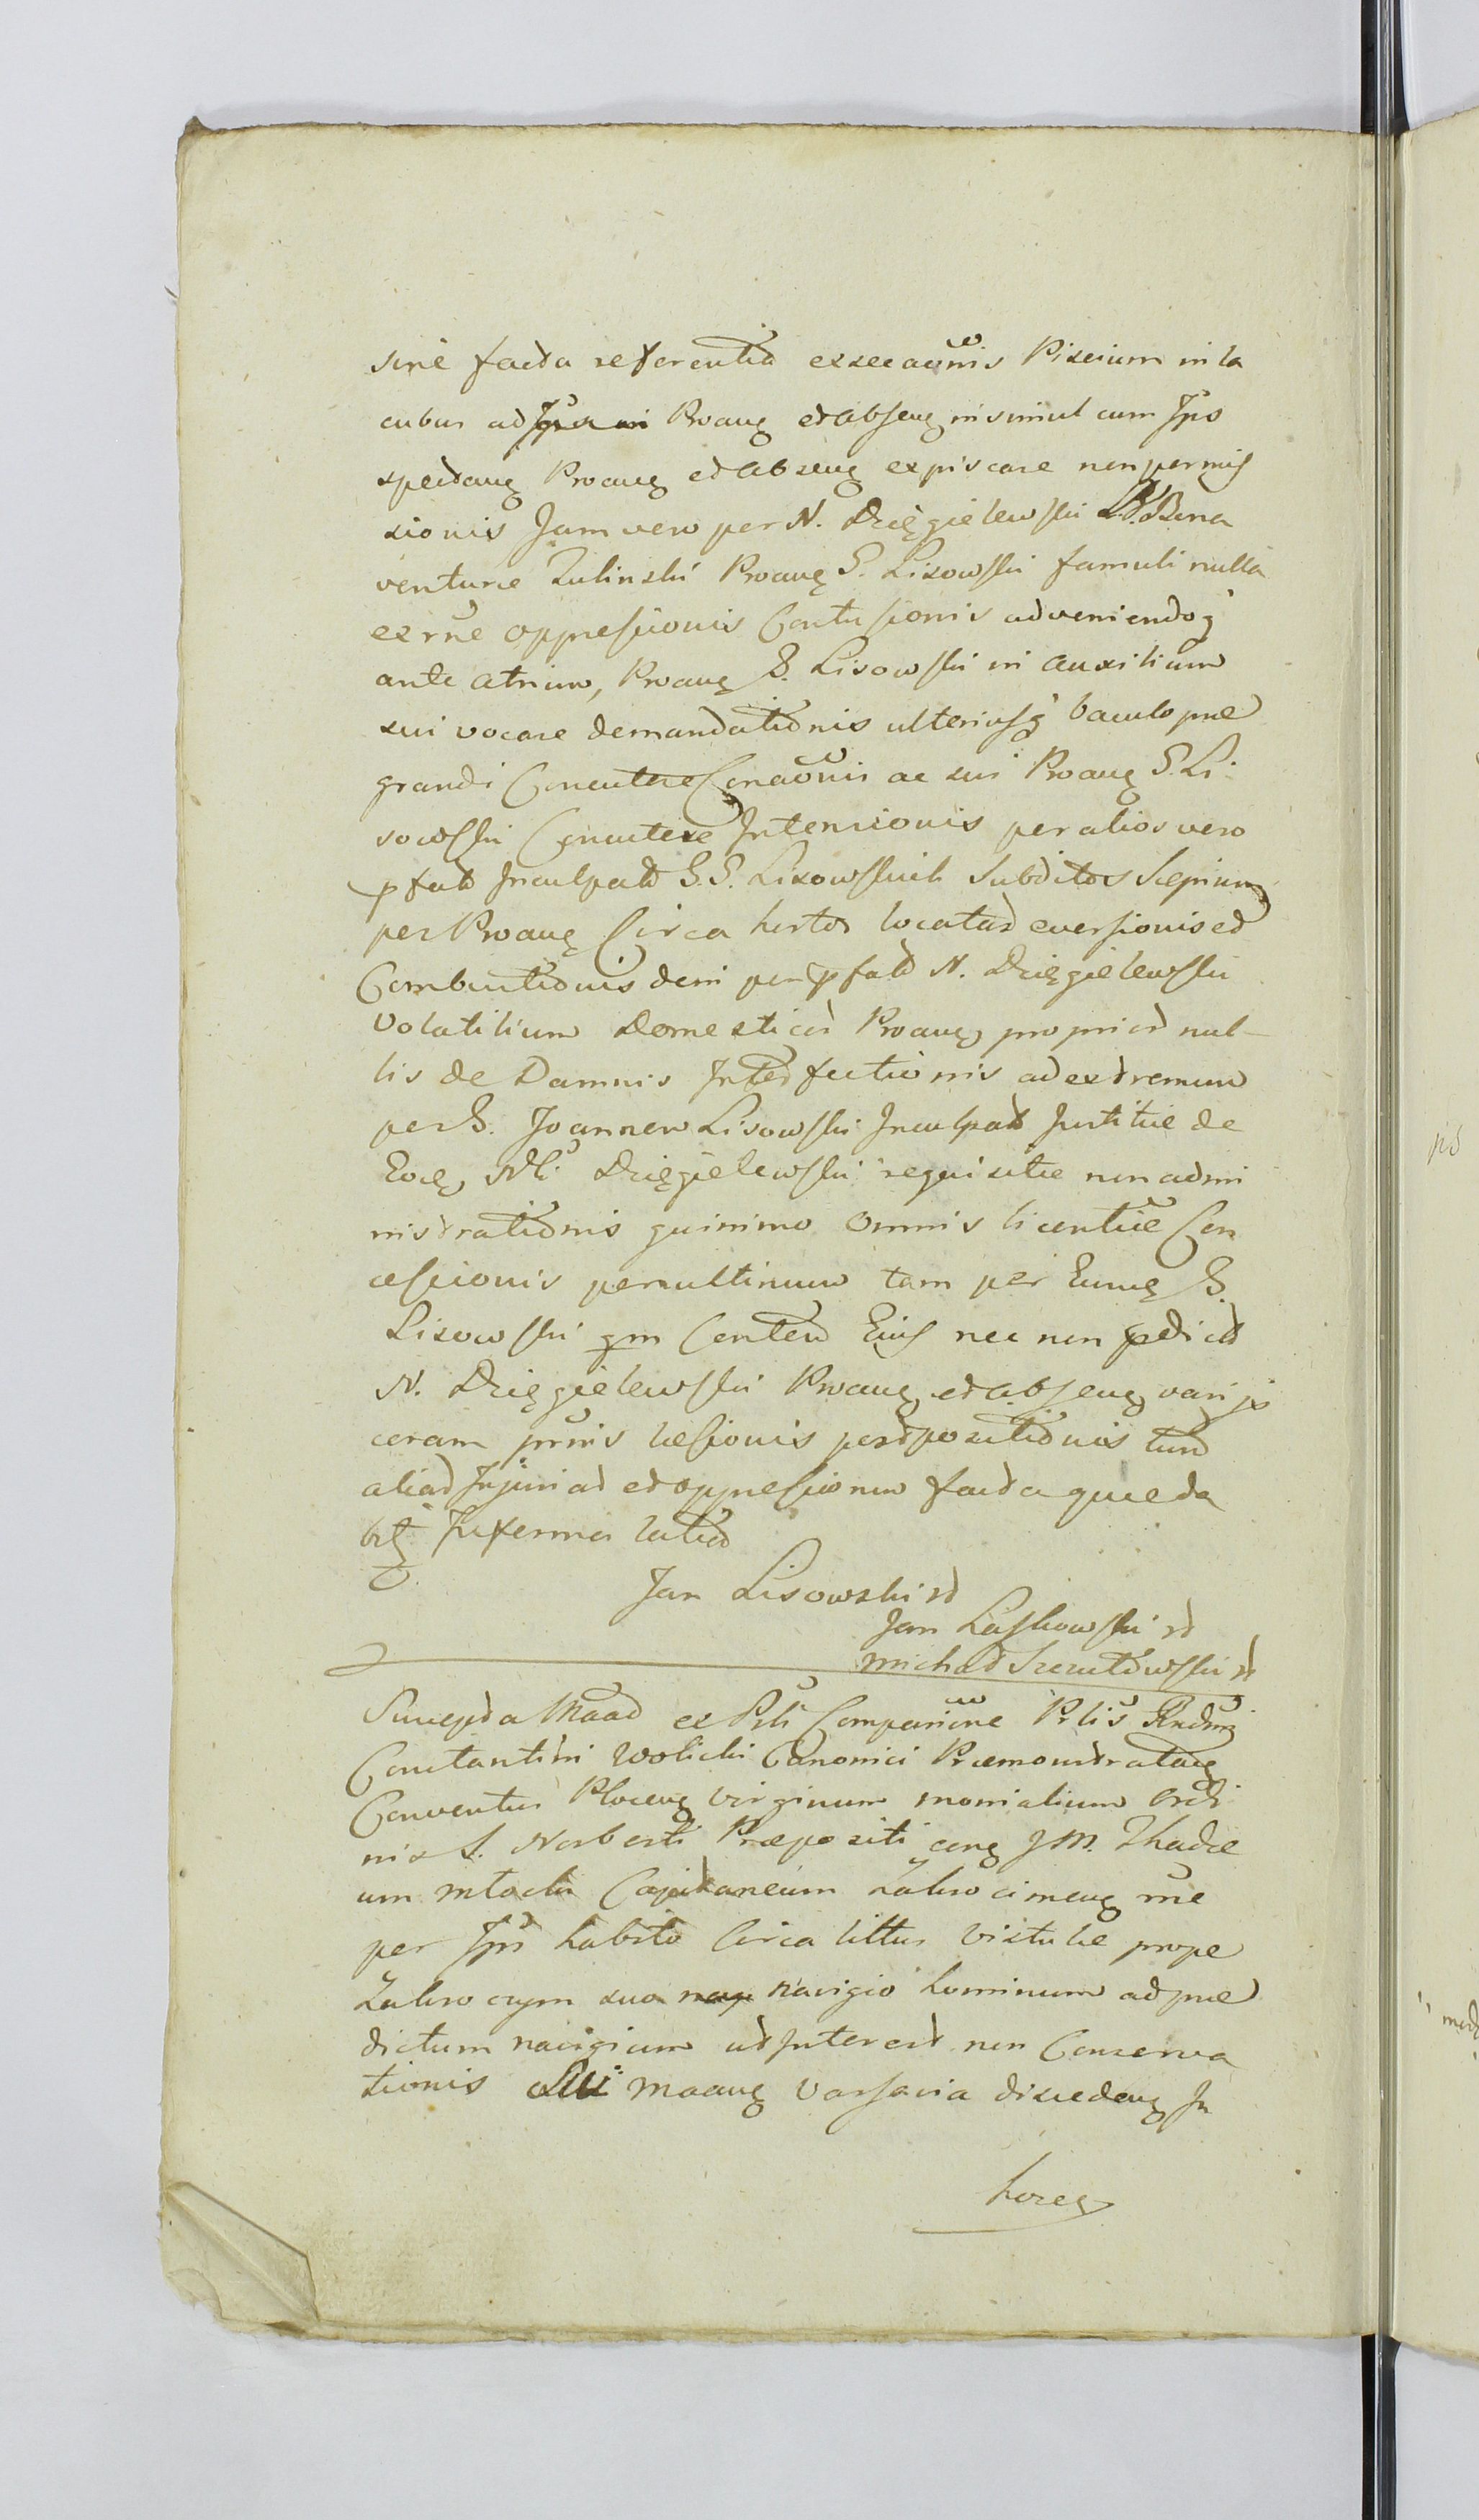 sine facta referentia exsecaonis Piscium in la
cubus ad Proang et abseng insimul cum Ipso
spectang Proang et abseng expiscare non permis
sionis Jam vero per N. Dzięgielewski Bona
venturæ Zulinski Proang G. Lisowski famuli nulla
ex rne oppressionis Contusionis adveniendoq
ante atrium, Proang G. Lisowski in auxilium
sui vocare demandationis ulteriusq baculo præ
grandi Concutere Conaonis ac sui Proang G. Li
sowski Concutere Intensionis per alios vero
pfat Inculpat G.G. Lisowskich Subditos Sepium
per Proang Circa hortos locatas eversionis et
Combustionis dein per pfat N. Dzięgielewski
Volatilium Domesticor Proang proprior nul
lis de Damnis Interfectionis ad extremum
per G. Joannem Lisowski Inculpat Justitiæ de
Eoq Nli Dzięgielewski requisitæ non admi
nistrationis quinimo omnis licentiæ Con
cessionis per ultimum tam per Eumq G.
Lisowski qm Conten Eius nec non pdict
N. Dzięgielewski Proang et absengvarijs
coram prnis læsionis postpositionis tum
alias Injurias et oppressionum facta quæda
Informa latia
Jan Lisowski st
Jan Laskowski st
Michał Szczutowski st
Suscepta Maad ex Prli Comparitione Prlis Rndmi
Constantini Wolicki Canonici Præmonstrateng
Conventus Ploceng Virginum monialium Ordi
nis S. Norberti Præpositi cong J M. Thadæ
um Młocki Capitaneum Zakrocimeng rne
per Ipm habito Circa littus Vistulæ prope
Zakrocym suo navigio hominum ad præ
dictum navigium ut Interest non Conserva
tionis Maang Varsavia discedeng In
horeq